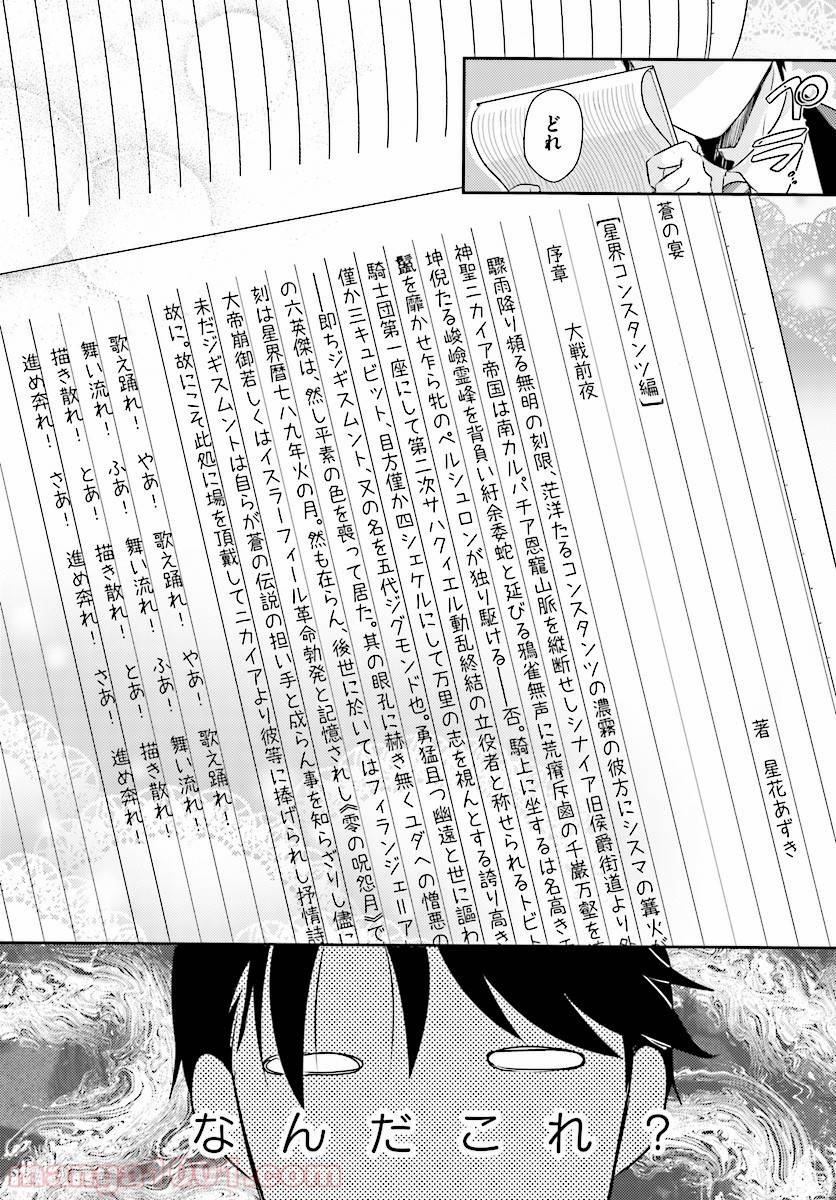 どれ
蒼の宴
【星界コンスタンツ編】
著　星花あずき
序章　大戦前夜
驟雨降り頻る無明の刻限、茫洋たるコンスタンツの濃霧の彼方にシスマの篝火が
神聖ニカイア帝国は南カルパチア恩寵山脈を縦断せしシナイア旧侯爵街道より外
坤倪たる峻嶮霊峰を背負い紆余委蛇と延びる鴉雀無声に荒瘠斥鹵の千巌万壑を
鬣を靡かせ乍ら牝のペルシュロンが独り駆ける――否。騎上に坐するは名高き
騎士団第一座にして第二次サハクィエル動乱終結の立役者と称せられるトビト
僅か三キュビット、目方僅か四シェケルにして万里の志を視んとする誇り高き
――即ちジギスムント、又の名を五代ジグモンド也。勇猛且つ幽遠と世に謳わ
の六英傑は、然し平素の色を喪って居た。其の眼孔に赫き無くユダへの憎悪の
刻は星界暦七八九年火の月。然も在らん、後世に於いてはフィランジェリア
大帝崩御若しくはイスラーフィール革命勃発と記憶されし《零の呪怨月》で
未だジギスムントは自らが蒼の伝説の担い手と成らん事を知らざりし儘に
故に。故にこそ此処に場を頂戴してニカイアより彼等に捧げられし抒情詩
歌え踊れ！　やあ！　歌え踊れ！　やあ！　歌え踊れ！
舞い流れ！　ふあ！　舞い流れ！　ふあ！　舞い流れ！
描き散れ！　とあ！　描き散れ！　とあ！　描き散れ！
進め奔れ！　さあ！　進め奔れ！　さあ！　進め奔れ！
なんだこれ？